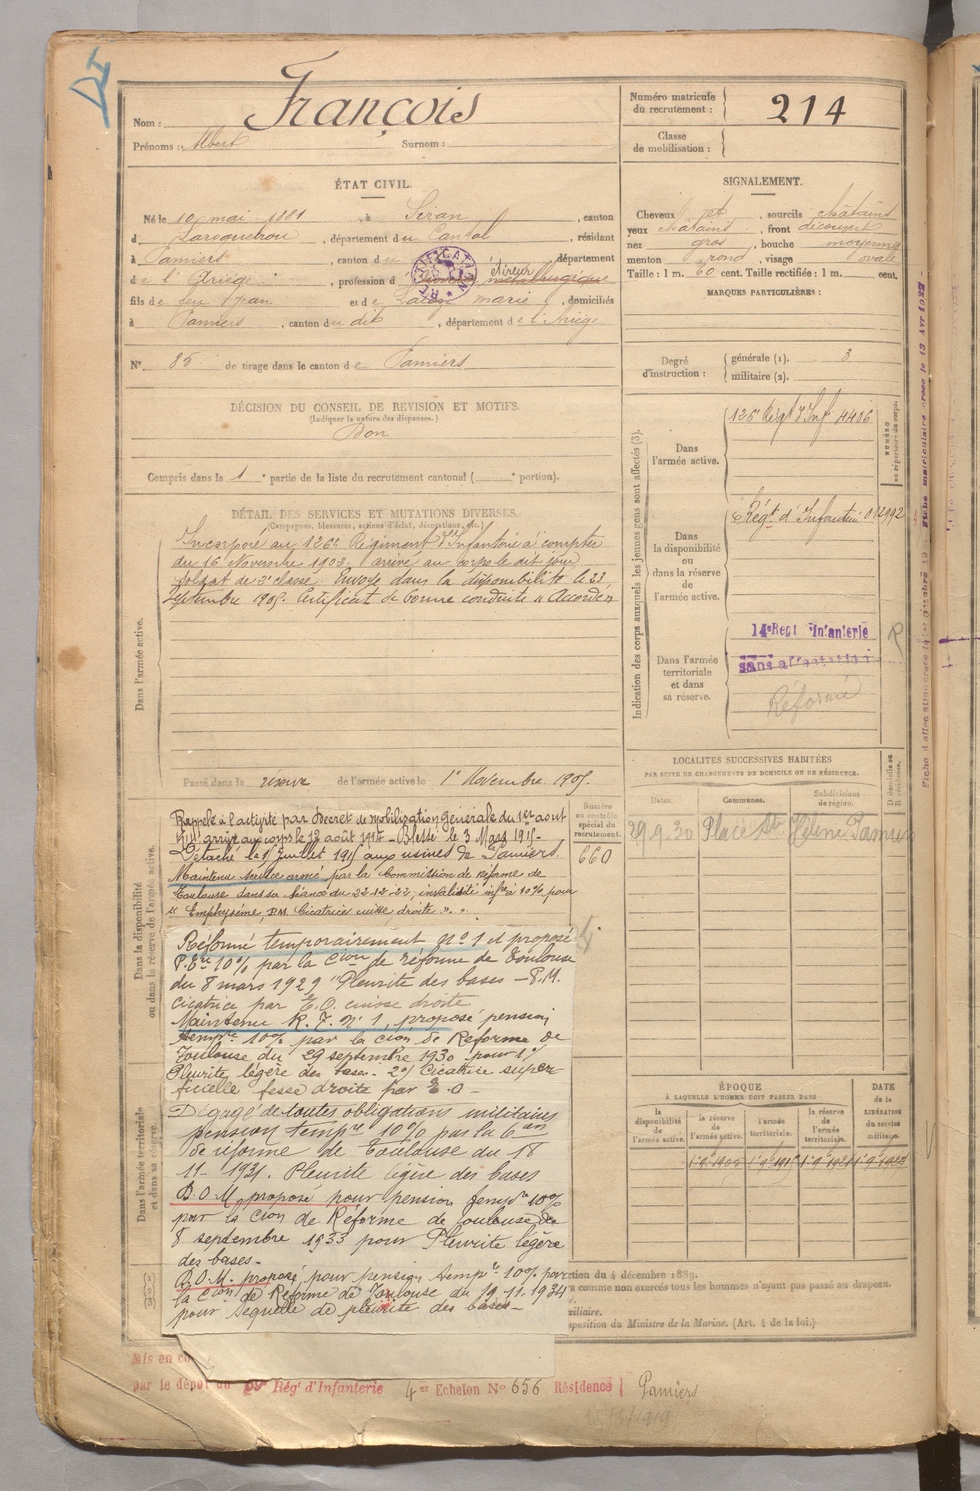 Nom : François
Prénoms : Albert Surnom :
Numéro matricule
du recrutement : 214
Classe
de mobilisation :
ÉTAT CIVIL.
Né le 10 mai 1881 à Siran, canton
d Laroquebrou, département du Cantal, résidant
à Pamiers, canton du département
de l'Ariège, profession d étireur métallurgique
fils de feu Jean et de marie, domiciliés
à Pamiers, canton du dit, département de l'Ariège
N° 85 de tirage dans le canton de Pamiers
SIGNALEMENT.
Cheveux , sourcils châtains
yeux châtains, front découvert
nez gros, bouche moyenne
menton rond, visage ovale
Taille : 1 m. 60 cent. Taille rectifiée : 1 m. cent.
MARQUES PARTICULIÈRES :
Degré
d'instruction :
générale (1). 3
militaire (2).
DÉCISION DU CONSEIL DE REVISION ET MOTIFS.
(Indiquer la nature des dispenses.)
Bon
Compris dans la 1e partie de la liste du recrutement cantonal ( e portion).
DÉTAIL DES SERVICES ET MUTATIONS DIVERSES.
(Campagnes, blessures, actions d'éclat, décorations, etc.)
Dans l'armée active.
Incorporé au 126e Régiment d'Infanterie à compter
du 16 Novembre 1902, arrivé au corps le dit jour
soldat de 2e classe. Envoyé dans la disponibilité le 23
septembre 1905. Certificat de bonne conduite "Accordé"
Passé dans la réserve de l'armée active le 1er Novembre 1905.
Indication des corps auxquels les jeunes gens sont affectés (3).
Dans
l'armée active.
126e Régt d'Inf 4406
NUMÉRO
au répertoire du corps
Dans
la disponibilité
ou
dans la réserve
de
l'armée active.
Régt d'Infanterie
Dans l'armée
territoriale
et dans
sa réserve.
14e Régt d'Infanterie
sans affectation
Réformé
R
LOCALITÉS SUCCESSIVES HABITÉES
PAR SUITE DE CHANGEMENTS DE DOMICILE OU DE RÉSIDENCE.
Dates. Communes. Subdivisions
de région.
D. domicile ou
R. résidence.
29.9.30 Place Ste Hélène Pamiers
Dans la disponibilité
ou dans la réserve de l'armée active.
Numéro
au contrôle
spécial du
recrutement.
660
Rappelé à l'activité par Décret de mobilisation Générale du 1er août
1914 arrivé au corps le 12 août 1914 - Blessé le 3 Mars 1915 -
Détaché le 15 Juillet 1915 aux usines de Pamiers.
Maintenu service armé par la Commission de réforme de
Toulouse dans sa séance du 22-12-22; invalidité infre à 10% pour
"Emphysème, P.M. Cicatrice cuisse droite".
Réformé temporairement n° 1 et proposé
P. Tre 10% par la Cion de réforme de Toulouse
du 8 mars 1929 "Pleurite des bases - P.M.
cicatrice par E.O. cuisse droite
Maintenu R.T. n° 1, proposé pension
tempre 10% par la Cion de Réforme de
Toulouse du 29 septembre 1930 pour 1°/
Pleurite légère des bases. 2°/ Cicatrice super
ficielle fesse droite par E.O -
Dans l'armée territoriale
et dans sa réserve.
Dégagé de toutes obligations militaires
pension tempre 10% par la Con
de réforme de Toulouse du 18
11-1931. Pleurite légère des bases
B.O.M. proposé pour pension tempre 10%
par la Cion de Réforme de Toulouse du
8 septembre 1933 pour Pleurite légère
des bases -
B.O.M. proposé pour pension tempre 10% par
la Cion de Réforme de Toulouse du 19.11.1934
pour séquelle de pleurite des bases -
ÉPOQUE
À LAQUELLE L'HOMME DOIT PASSER DANS
la
disponibilité
de
l'armée active.
la réserve
de
l'armée active.
l'armée
territoriale.
la réserve
de
l'armée
territoriale.
DATE
de la
LIBÉRATION
du service
militaire.
ction du 4 décembre 1889.
s comme non exercés tous les hommes n'ayant pas passé au drapeau.
xiliaire.
sposition du Ministre de la Marine. (Art. 4 de la loi.)
Mis en co
par le dépôt du Rég' d'Infanterie 4 er Echelon N° 656 Résidence Pamiers